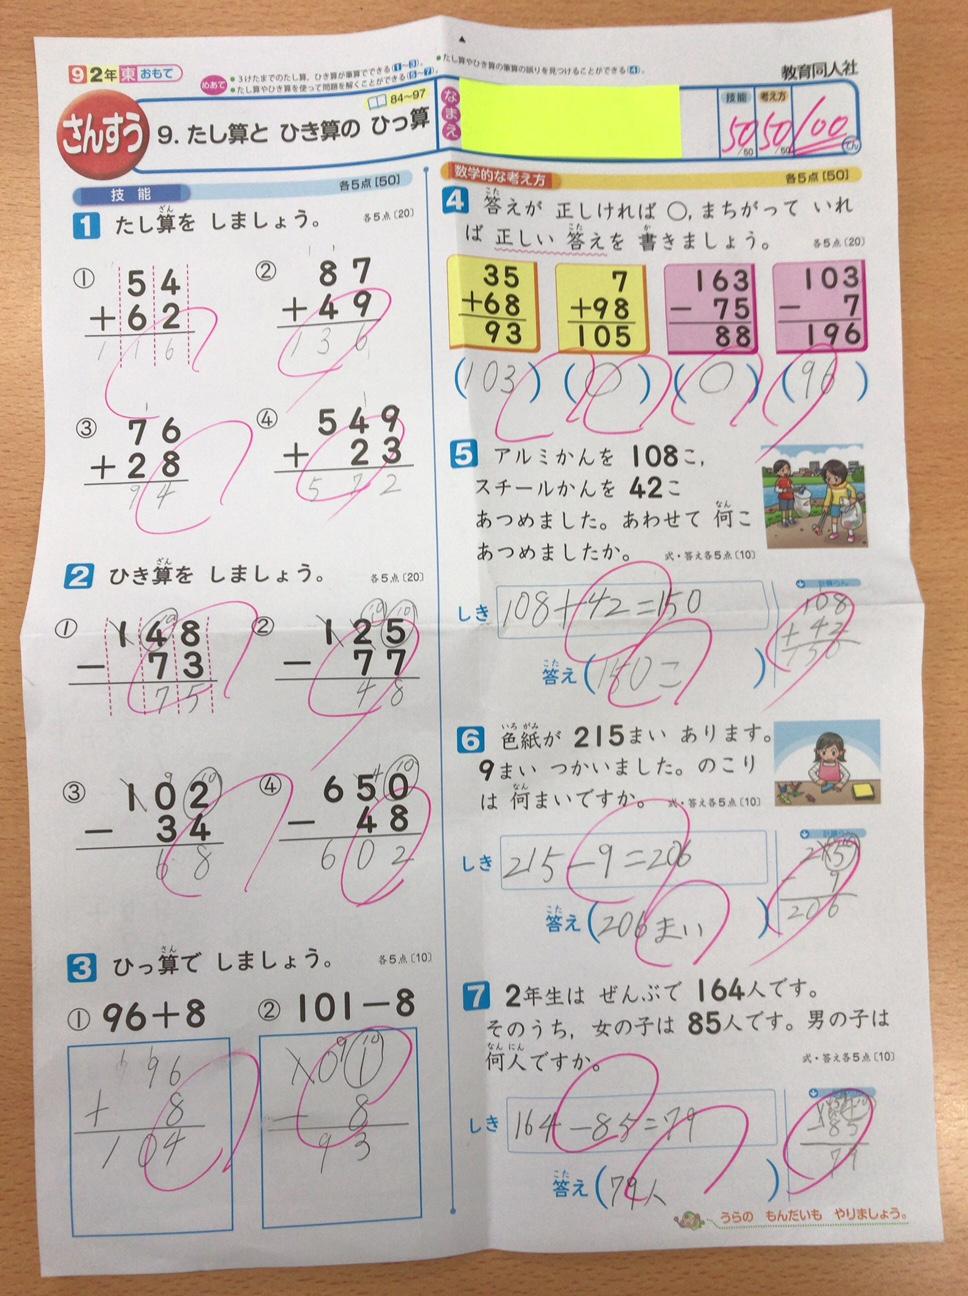 9 2年 東 おもて
めあて
●3けたまでのたし算、ひき算が筆算でできる(1~3)。
●たし算やひき算を使って問題を解くことができる(5~7)。
●たし算やひき算の筆算の誤りを見つけることができる(4)。
教育同人社
さんすう
84~97
9. たし算と ひき算の ひっ算
なまえ
技能 考え方
50 50 100
/50 /50 てん
技 能 各5点〔50〕
1 たし算を しましょう。 各5点〔20〕
①
54
+62
116
②
87
+49
136
③
76
+28
94
④
549
+ 23
572
2 ひき算を しましょう。 各5点〔20〕
①
148
- 73
75
②
125
- 77
48
③
102
- 34
68
④
650
- 48
602
3 ひっ算で しましょう。 各5点〔10〕
① 96+8
96
+ 8
104
② 101-8
101
- 8
93
数学的な考え方 各5点〔50〕
4 答えが 正しければ ○, まちがって いれ
ば 正しい 答えを 書きましょう。 各5点〔20〕
35
+68
93
(103)
7
+98
105
(○)
163
- 75
88
(○)
103
- 7
196
(96)
5 アルミかんを 108こ,
スチールかんを 42こ
あつめました。あわせて 何こ
あつめましたか。 式・答え各5点〔10〕
しき 108+42=150
答え(150こ)
108
+ 42
150
6 色紙が 215まい あります。
9まい つかいました。のこり
は 何まいですか。 式・答え各5点〔10〕
しき 215-9=206
答え(206まい)
215
- 9
206
7 2年生は ぜんぶで 164人です。
そのうち, 女の子は 85人です。男の子は
何人ですか。 式・答え各5点〔10〕
しき 164-85=79
答え(79人)
- 85
79
うらの もんだいも やりましょう。